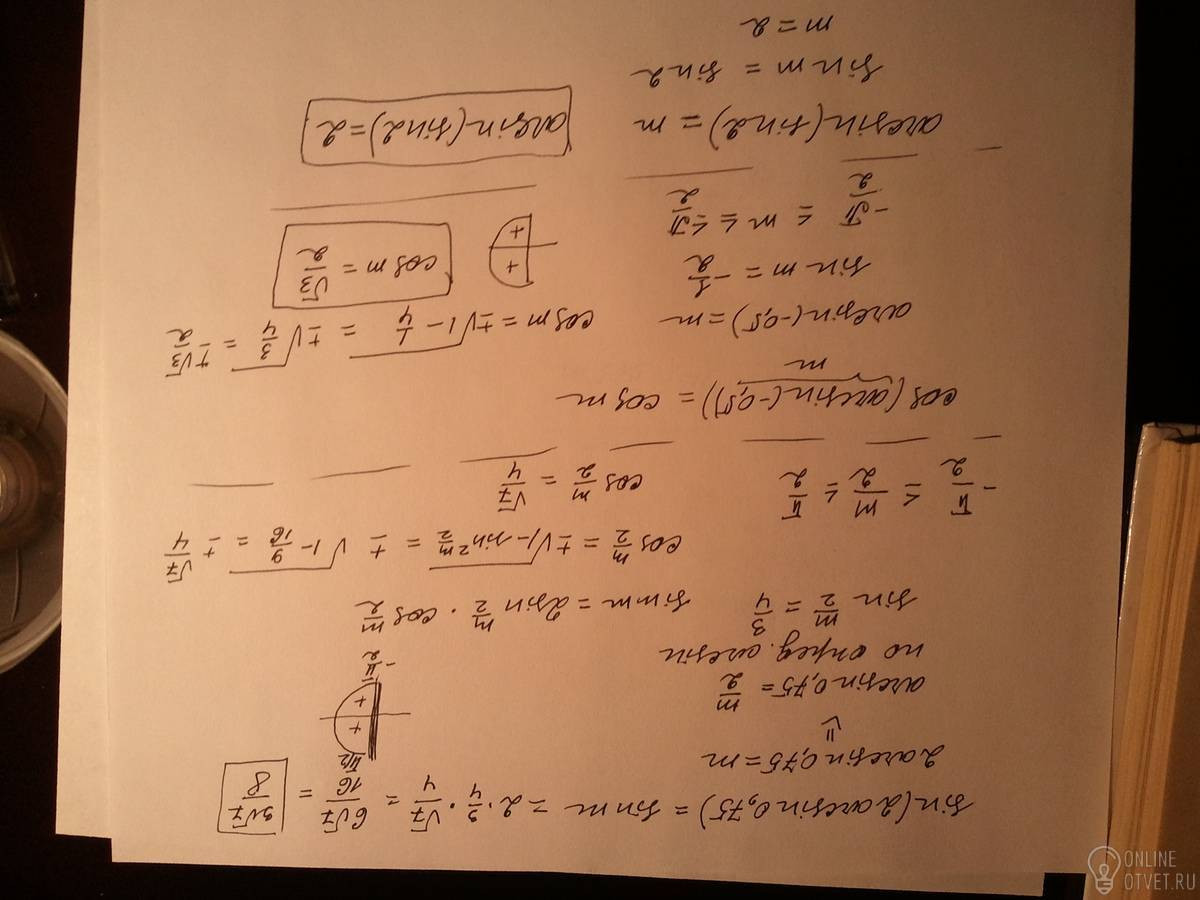 sin(2arcsin0,75) = sin m = 2·3/4·√7/4 = 6√7/16 = 3√7/8
2arcsin0,75=m
⇓
arcsin0,75= m/2
π/2
+
+
-π/2
по опред. arcsin
sin m/2 = 3/4
sin m = 2sin m/2 · cos m/2
cos m/2 = ±√1-sin² m/2 = ± √1-9/16 = ± √7/4
-π/2 ≤ m/2 ≤ π/2
cos m/2 = √7/4
cos(arcsin(-0,5)) = cos m
m
arcsin(-0,5)=m
cos m = ±√1-1/4 = ±√3/4 = ±√3/2
sin m = -1/2
-π/2 ≤ m ≤ π/2
+
+
cos m = √3/2
arcsin(sin2) = m
arcsin(sin2)=2
sin m = sin2
m=2
ONLINE
OTVET.RU